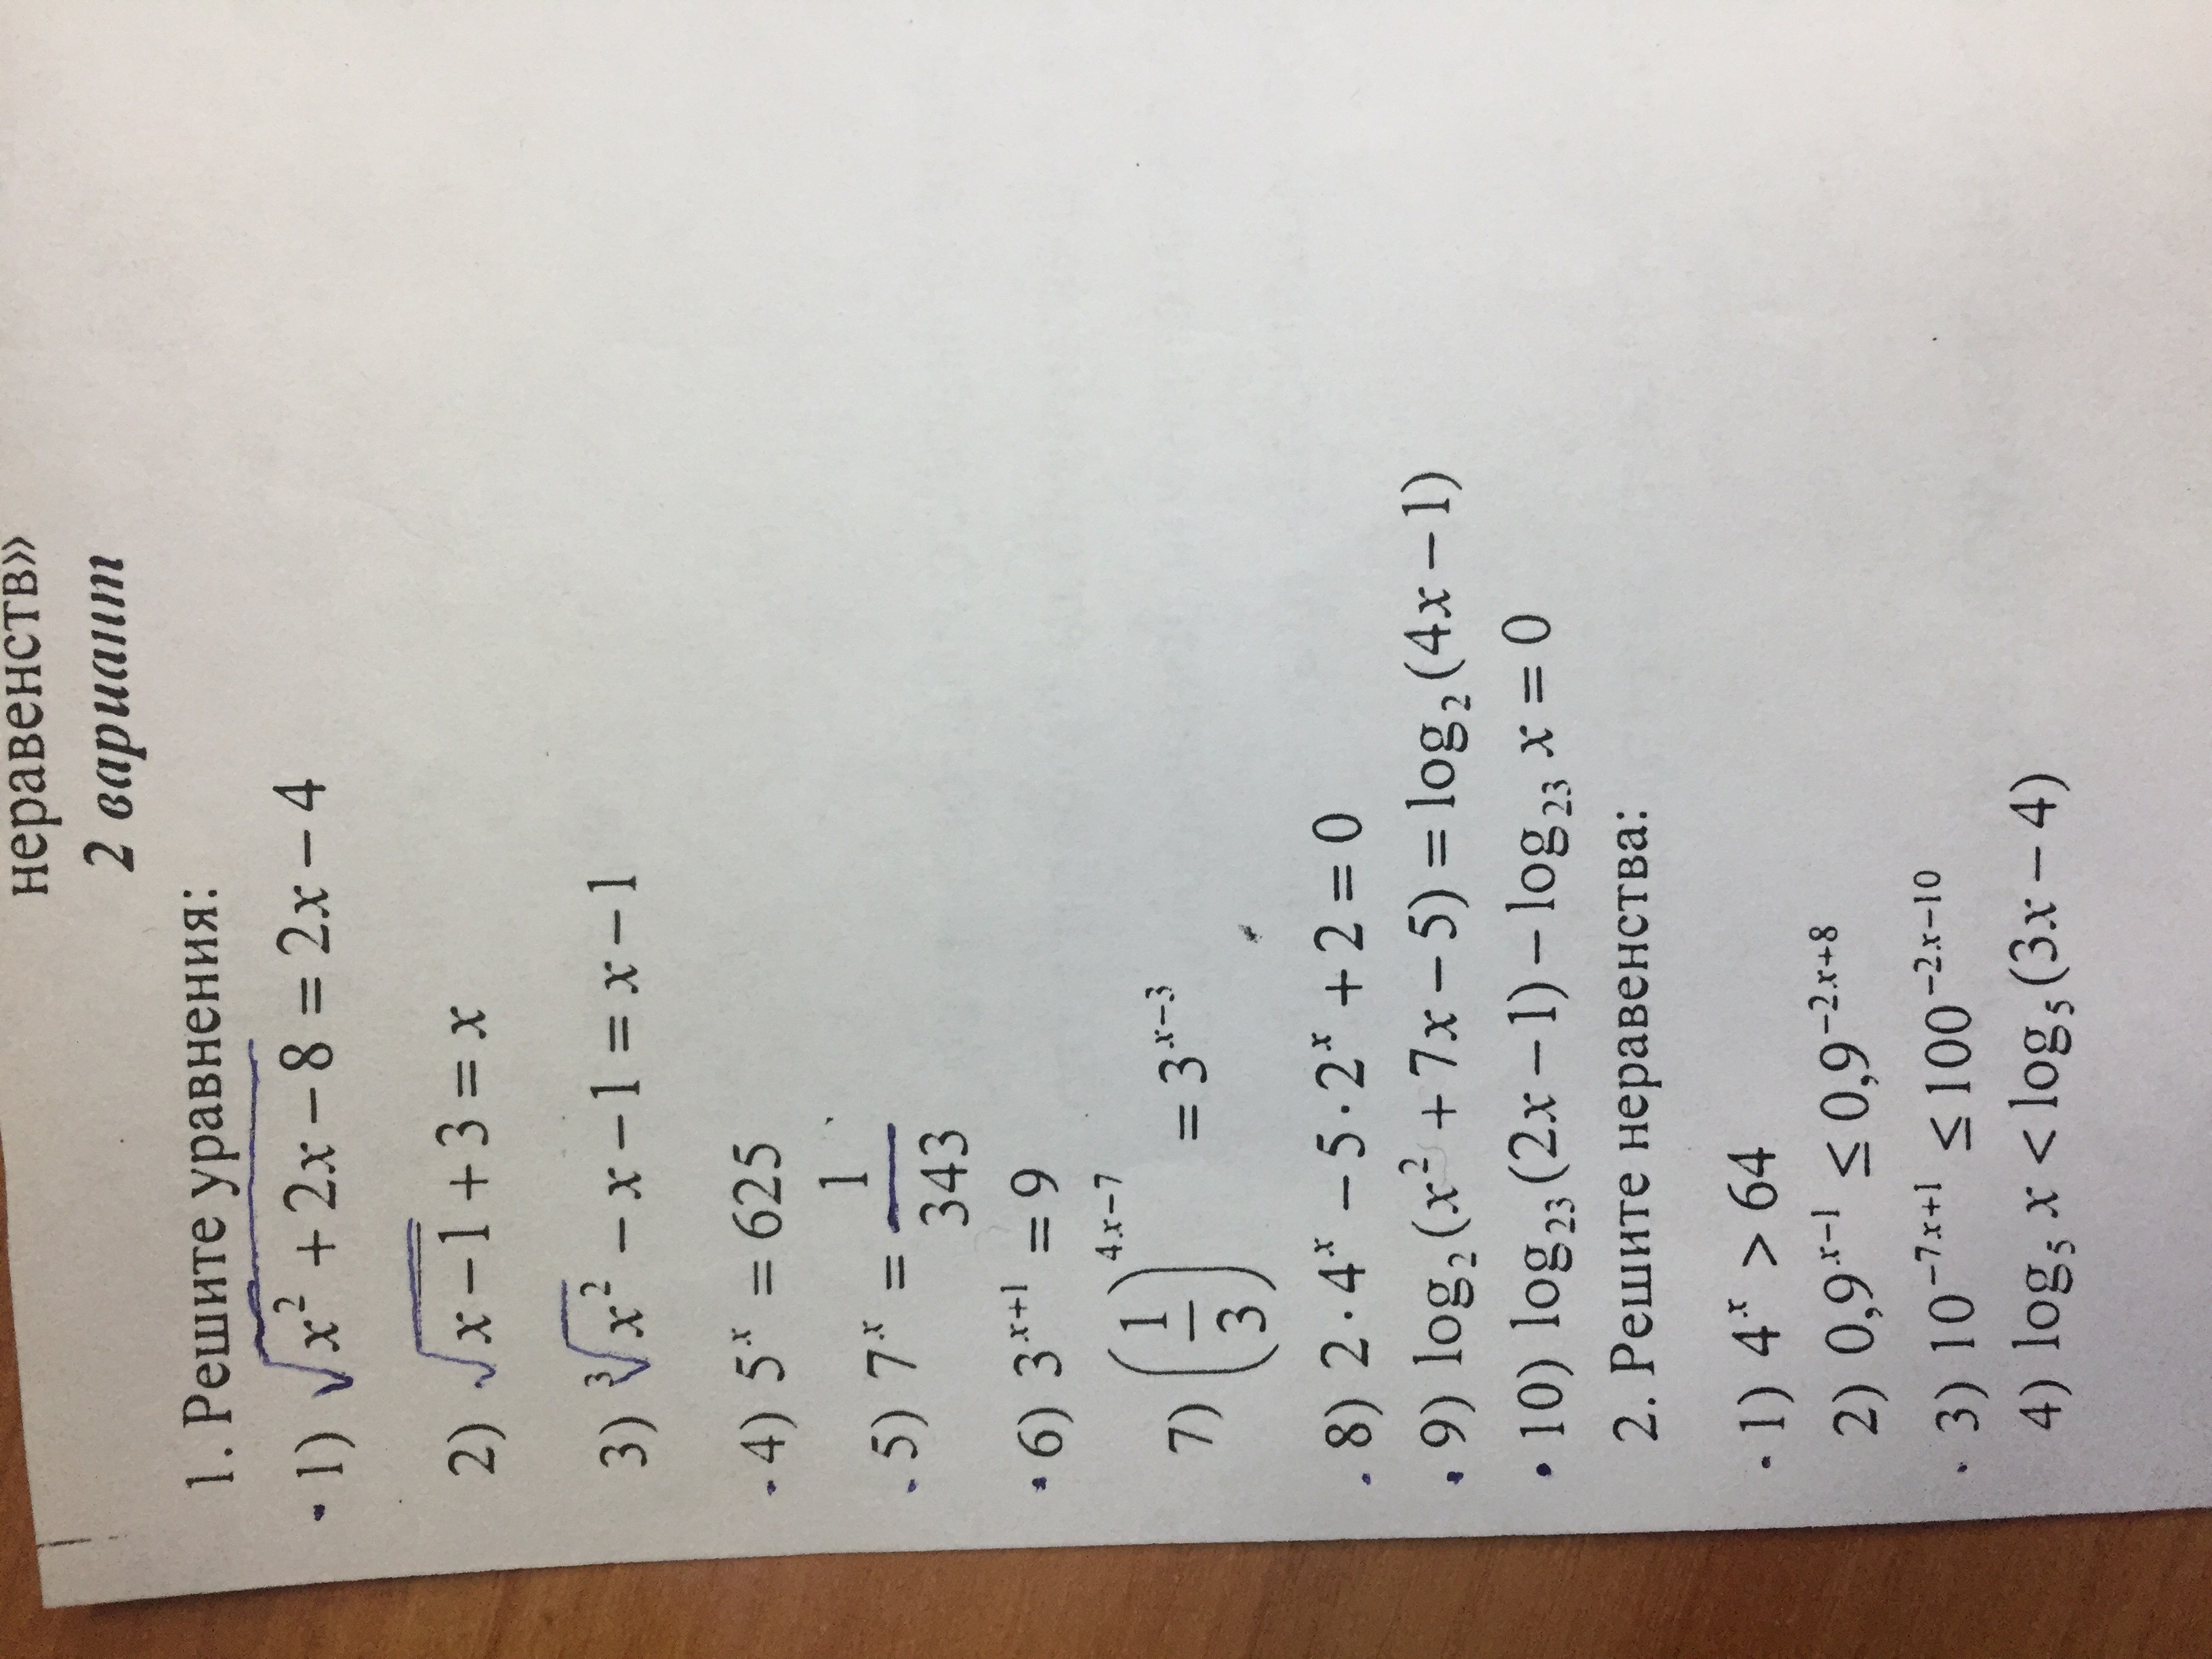 неравенств»
2 вариант
1. Решите уравнения:
1) √(x² + 2x − 8) = 2x − 4
2) √(x − 1) + 3 = x
3) ∛(x²) − x − 1 = x − 1
4) 5ˣ = 625
5) 7ˣ = 1/343
6) 3ˣ⁺¹ = 9
7) (1/3)⁴ˣ⁻⁷ = 3ˣ⁻³
8) 2·4ˣ − 5·2ˣ + 2 = 0
9) log₂(x² + 7x − 5) = log₂(4x − 1)
10) log₂₃(2x − 1) − log₂₃ x = 0
2. Решите неравенства:
1) 4ˣ > 64
2) 0,9ˣ⁻¹ ≤ 0,9⁻²ˣ⁺⁸
3) 10⁻⁷ˣ⁺¹ ≤ 100⁻²ˣ⁻¹⁰
4) log₅ x < log₅(3x − 4)